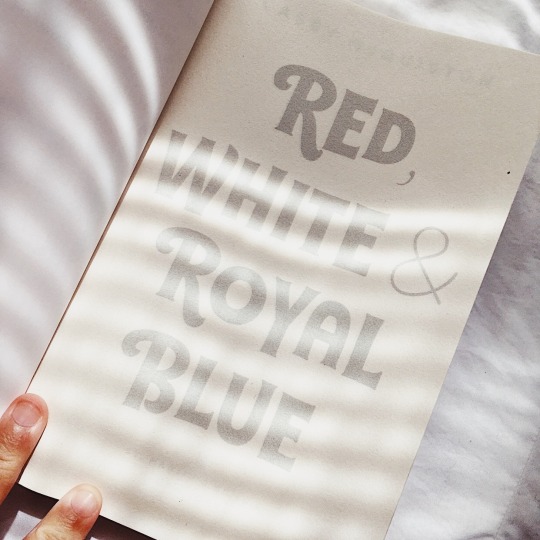 RED,
WHITE &
ROYAL
BLUE